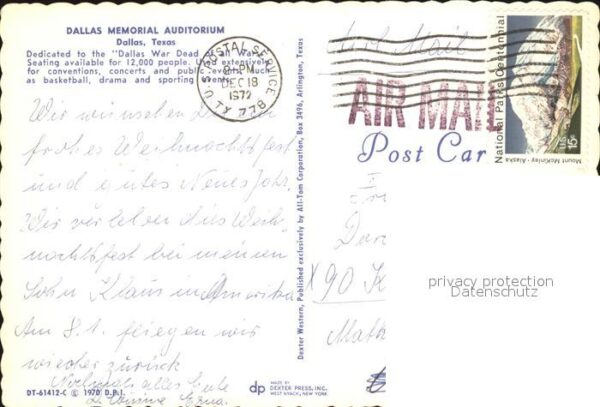 DALLAS MEMORIAL AUDITORIUM
Dallas, Texas
Dedicated to the "Dallas War Dead of all Wars".
Seating available for 12,000 people. Used extensively
for conventions, concerts and public events, such
as basketball, drama and sporting
U.S. POSTAL SERVICE
PM
DEC 18
1972
TX 778
AIR MAIL
National Parks Centennial
Mount McKinley • Alaska
U.S.
15c
Post Car
Wir wünschen
frohes Weihnachtsfest
und gutes Neues Jahr.
Wir verleben dies Weih-
nachtsfest bei meinem
Sohn Klaus in Amerika
Am 8.1. fliegen wir
wieder zurück
Nochmals alles Gute
Erna
Dexter Western, Published exclusively by All-Tom Corporation, Box 3496, Arlington, Texas
X 90 K
privacy protection
Datenschutz
DT-61412-C © 1970 D.P.I.
dp
MADE BY
DEXTER PRESS, INC.
WEST NYACK, NEW YORK